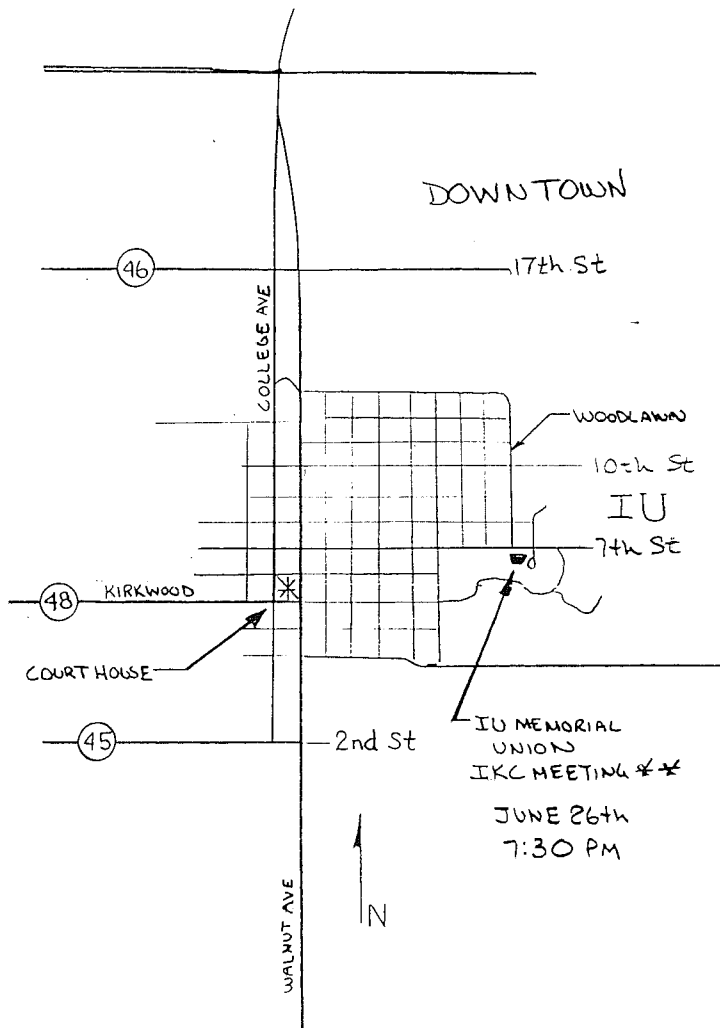 DOWNTOWN
46
17th St
COLLEGE AVE
WOODLAWN
10th St
IU
7th St
48
KIRKWOOD
COURT HOUSE
45
2nd St
IU MEMORIAL
UNION
IKC MEETING **
JUNE 26th
7:30 PM
N
WALNUT AVE